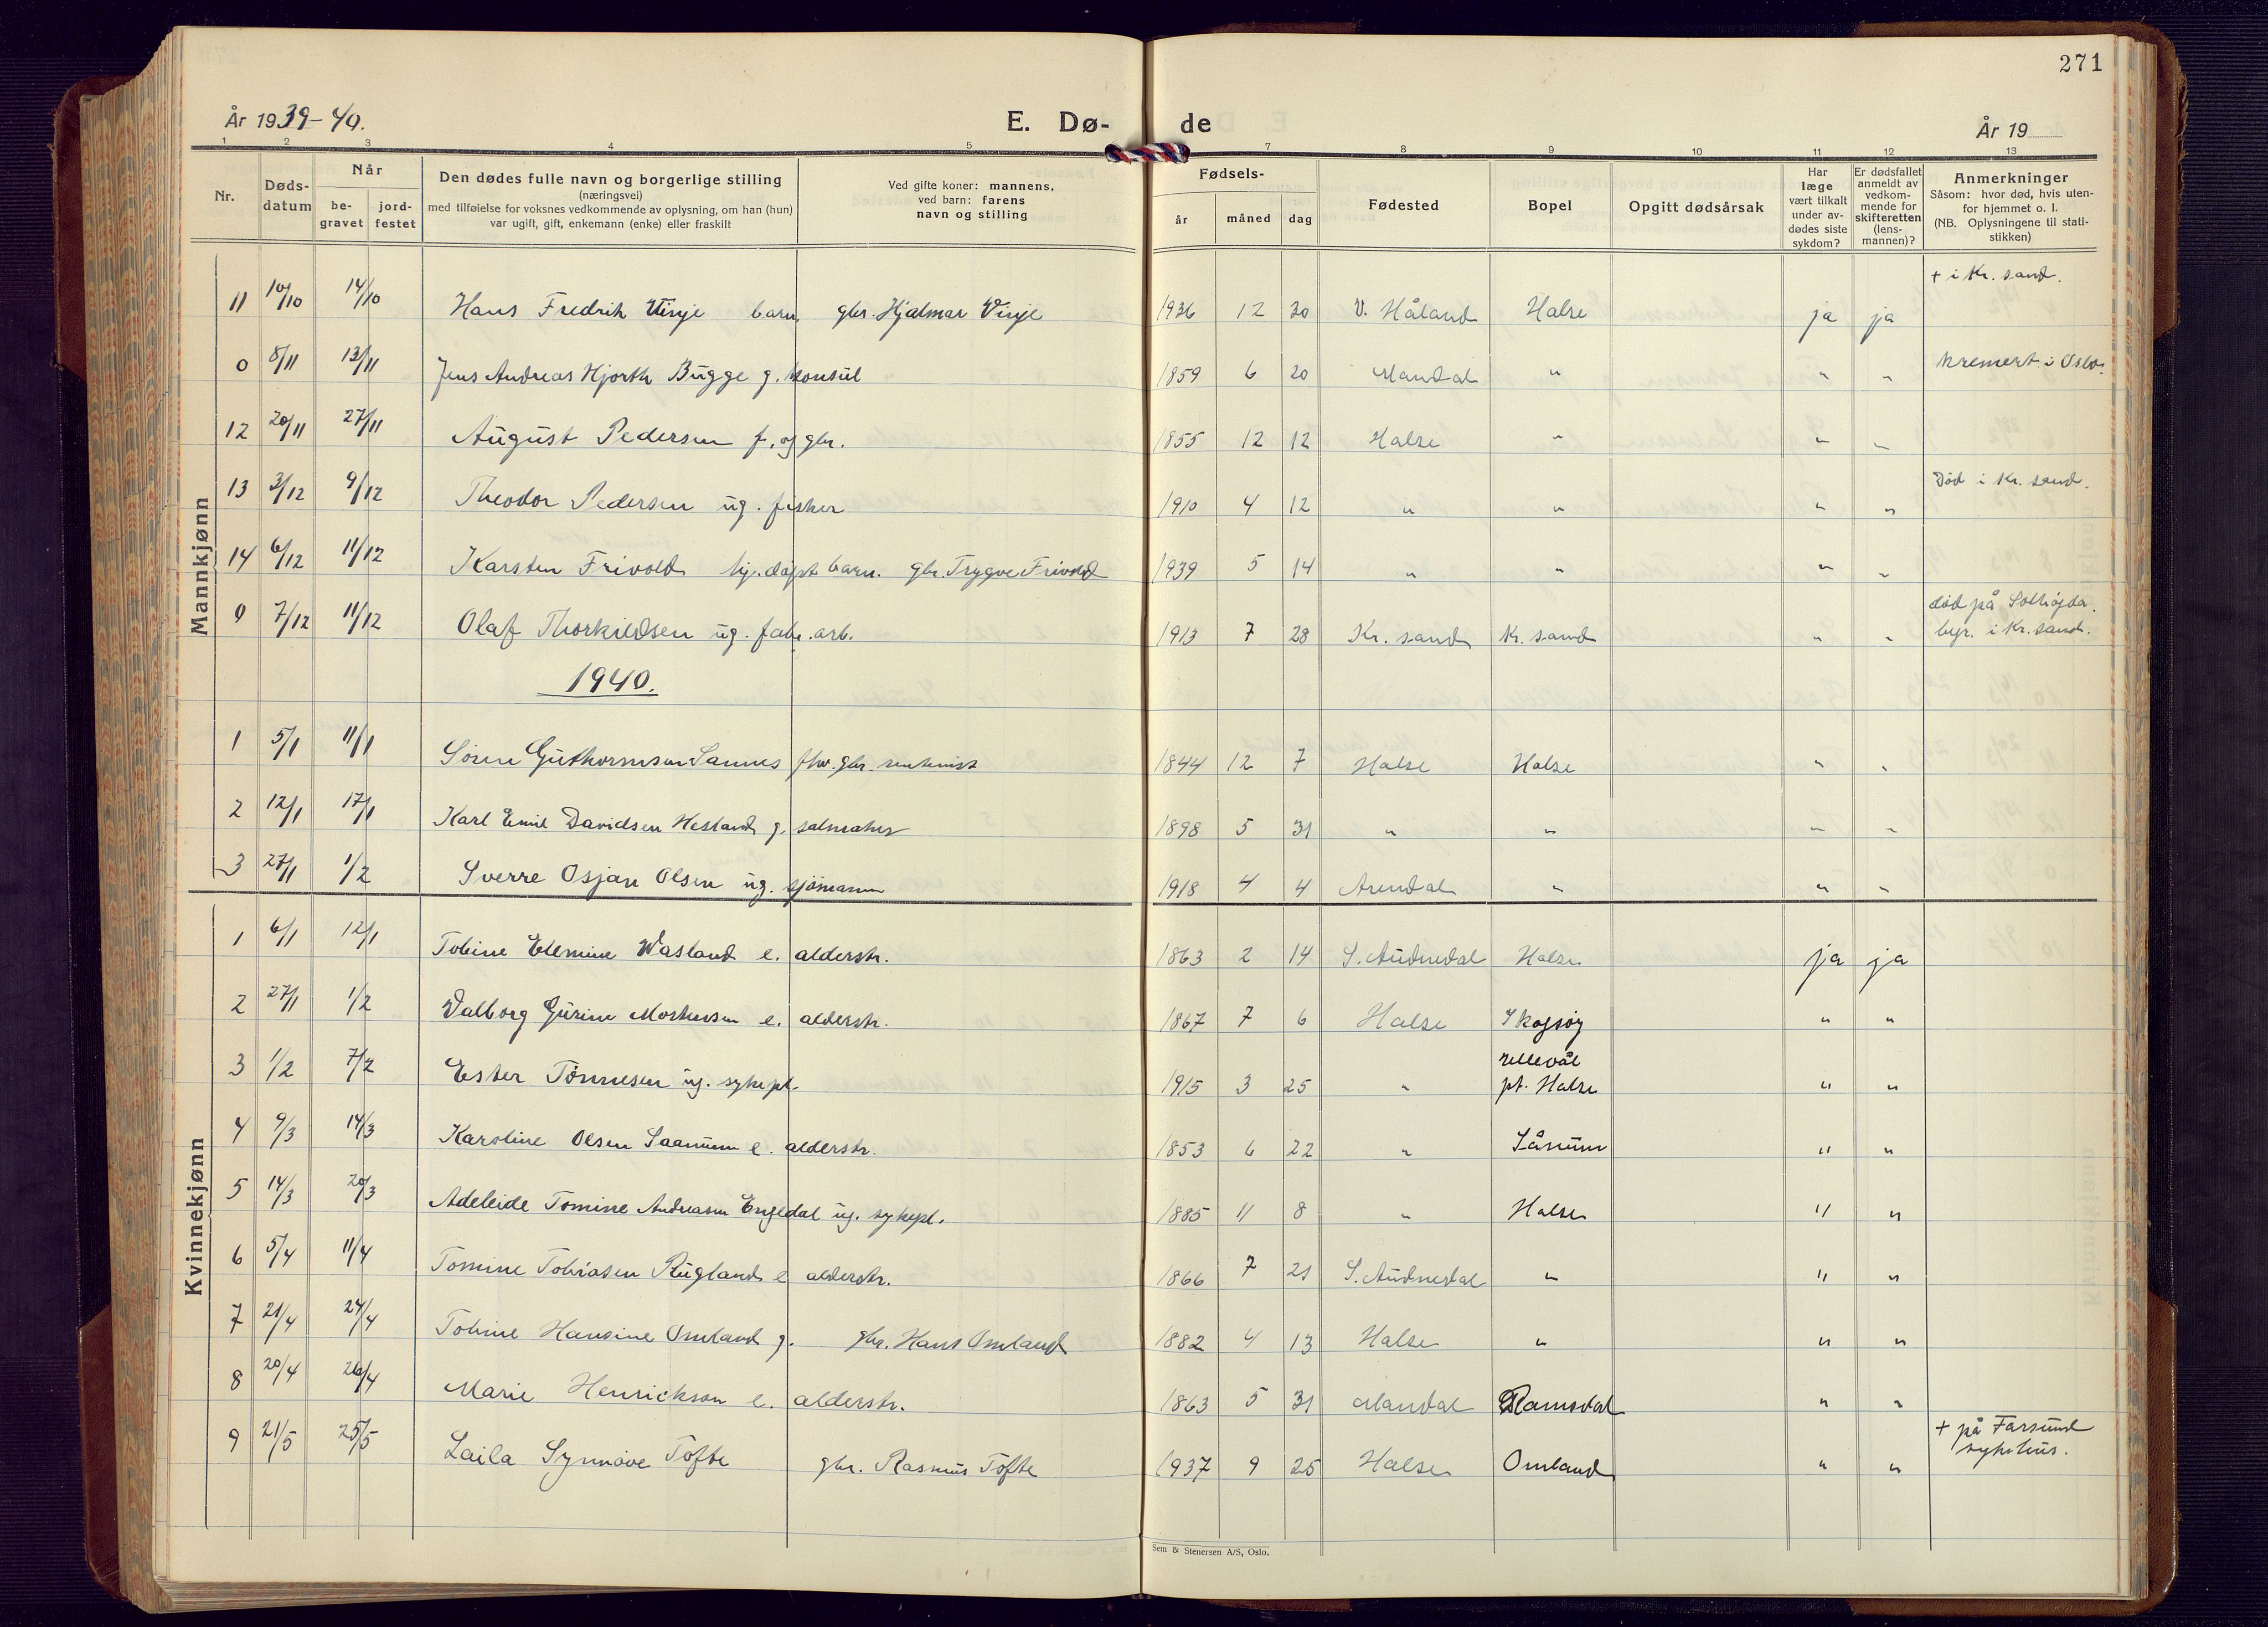 271
År 1939-40.
E. Dø- de
År 19
1 2 3 4 5 7 8 9 10 11 12 13
Nr.
Døds-
datum
Når
be-
gravet
jord-
festet
Den dødes fulle navn og borgerlige stilling
(næringsvei)
med tilføielse for voksnes vedkommende av oplysning, om han (hun)
var ugift, gift, enkemann (enke) eller fraskilt
Ved gifte koner: mannens,
ved barn: farens
navn og stilling
Fødsels-
år måned dag
Fødested
Bopel
Opgitt dødsårsak
Har
læge
vært tilkalt
under av-
dødes siste
sykdom?
Er dødsfallet
anmeldt av
vedkom-
mende for
skifteretten
(lens-
mannen)?
Anmerkninger
Såsom: hvor død, hvis uten-
for hjemmet o. l.
(NB. Oplysningene til stati-
stikken)
Mannkjønn
11 10/10 14/10 Hans Fredrik Vinje barn gbr. Hjalmar Vinje 1936 12 30 V. Håland Halse ja ja + i Kr. sand.
0 8/11 13/11 Jens Andreas Hjorth Bugge g. konsul 1859 6 20 Mandal " " " kremert i Oslo.
12 20/11 27/11 August Pedersen f. og gbr. 1855 12 12 Halse " " "
13 3/12 9/12 Theodor Pedersen ug. fisker 1910 4 12 " " " " Død i Kr. sand.
14 6/12 11/12 Karsten Frivold hj. døpt barn. gbr. Trygve Frivold 1939 5 14 " " " "
0 7/12 11/12 Olaf Thorkildsen ug. fabr. arb. 1913 7 28 Kr. sand Kr. sand " " død på Solhøgda.
begr. i Kr. sand.
1940.
1 5/1 11/1 Søren Guthormsen Sannes fhv. gbr. rentenist 1844 12 7 Halse Halse " "
2 12/1 17/1 Karl Emil Davidsen Hesland g. salmaker 1898 5 31 " " " "
3 27/1 1/2 Sverre Osjan Olsen ug. sjømann 1918 4 4 Arendal " " "
Kvinnekjønn
1 6/1 12/1 Tobine Elemine Wasland e. alderstr. 1863 2 14 S. Audnedal Halse ja ja
2 27/1 1/2 Valborg Gurine Mortensen e. alderstr. 1867 7 6 Halse Skogsøy " "
3 1/2 7/2 Ester Tønnesen ug. sykepl. 1915 3 25 " Ullevål
pt. Halse " "
4 9/3 14/3 Karoline Olsen Saanum e. alderstr. 1853 6 22 " Sånum " "
5 14/3 20/3 Adeleide Tomine Andreasen Engedal ug. sykepl. 1885 11 8 " Halse " "
6 5/4 11/4 Tomine Tobiasen Rugland e alderstr. 1866 7 21 S. Audnedal " " "
7 21/4 24/4 Tobine Hansine Omland g. gbr. Hans Omland 1882 4 13 Halse " " "
8 20/4 26/4 Marie Henrickson e. alderstr. 1863 5 31 Mandal Ramsdal " "
9 21/5 25/5 Laila Synnøve Tofte gbr. Rasmus Tofte 1937 9 25 Halse Omland " " + på Farsund
sykehus.
Sem & Stenersen A/S, Oslo.